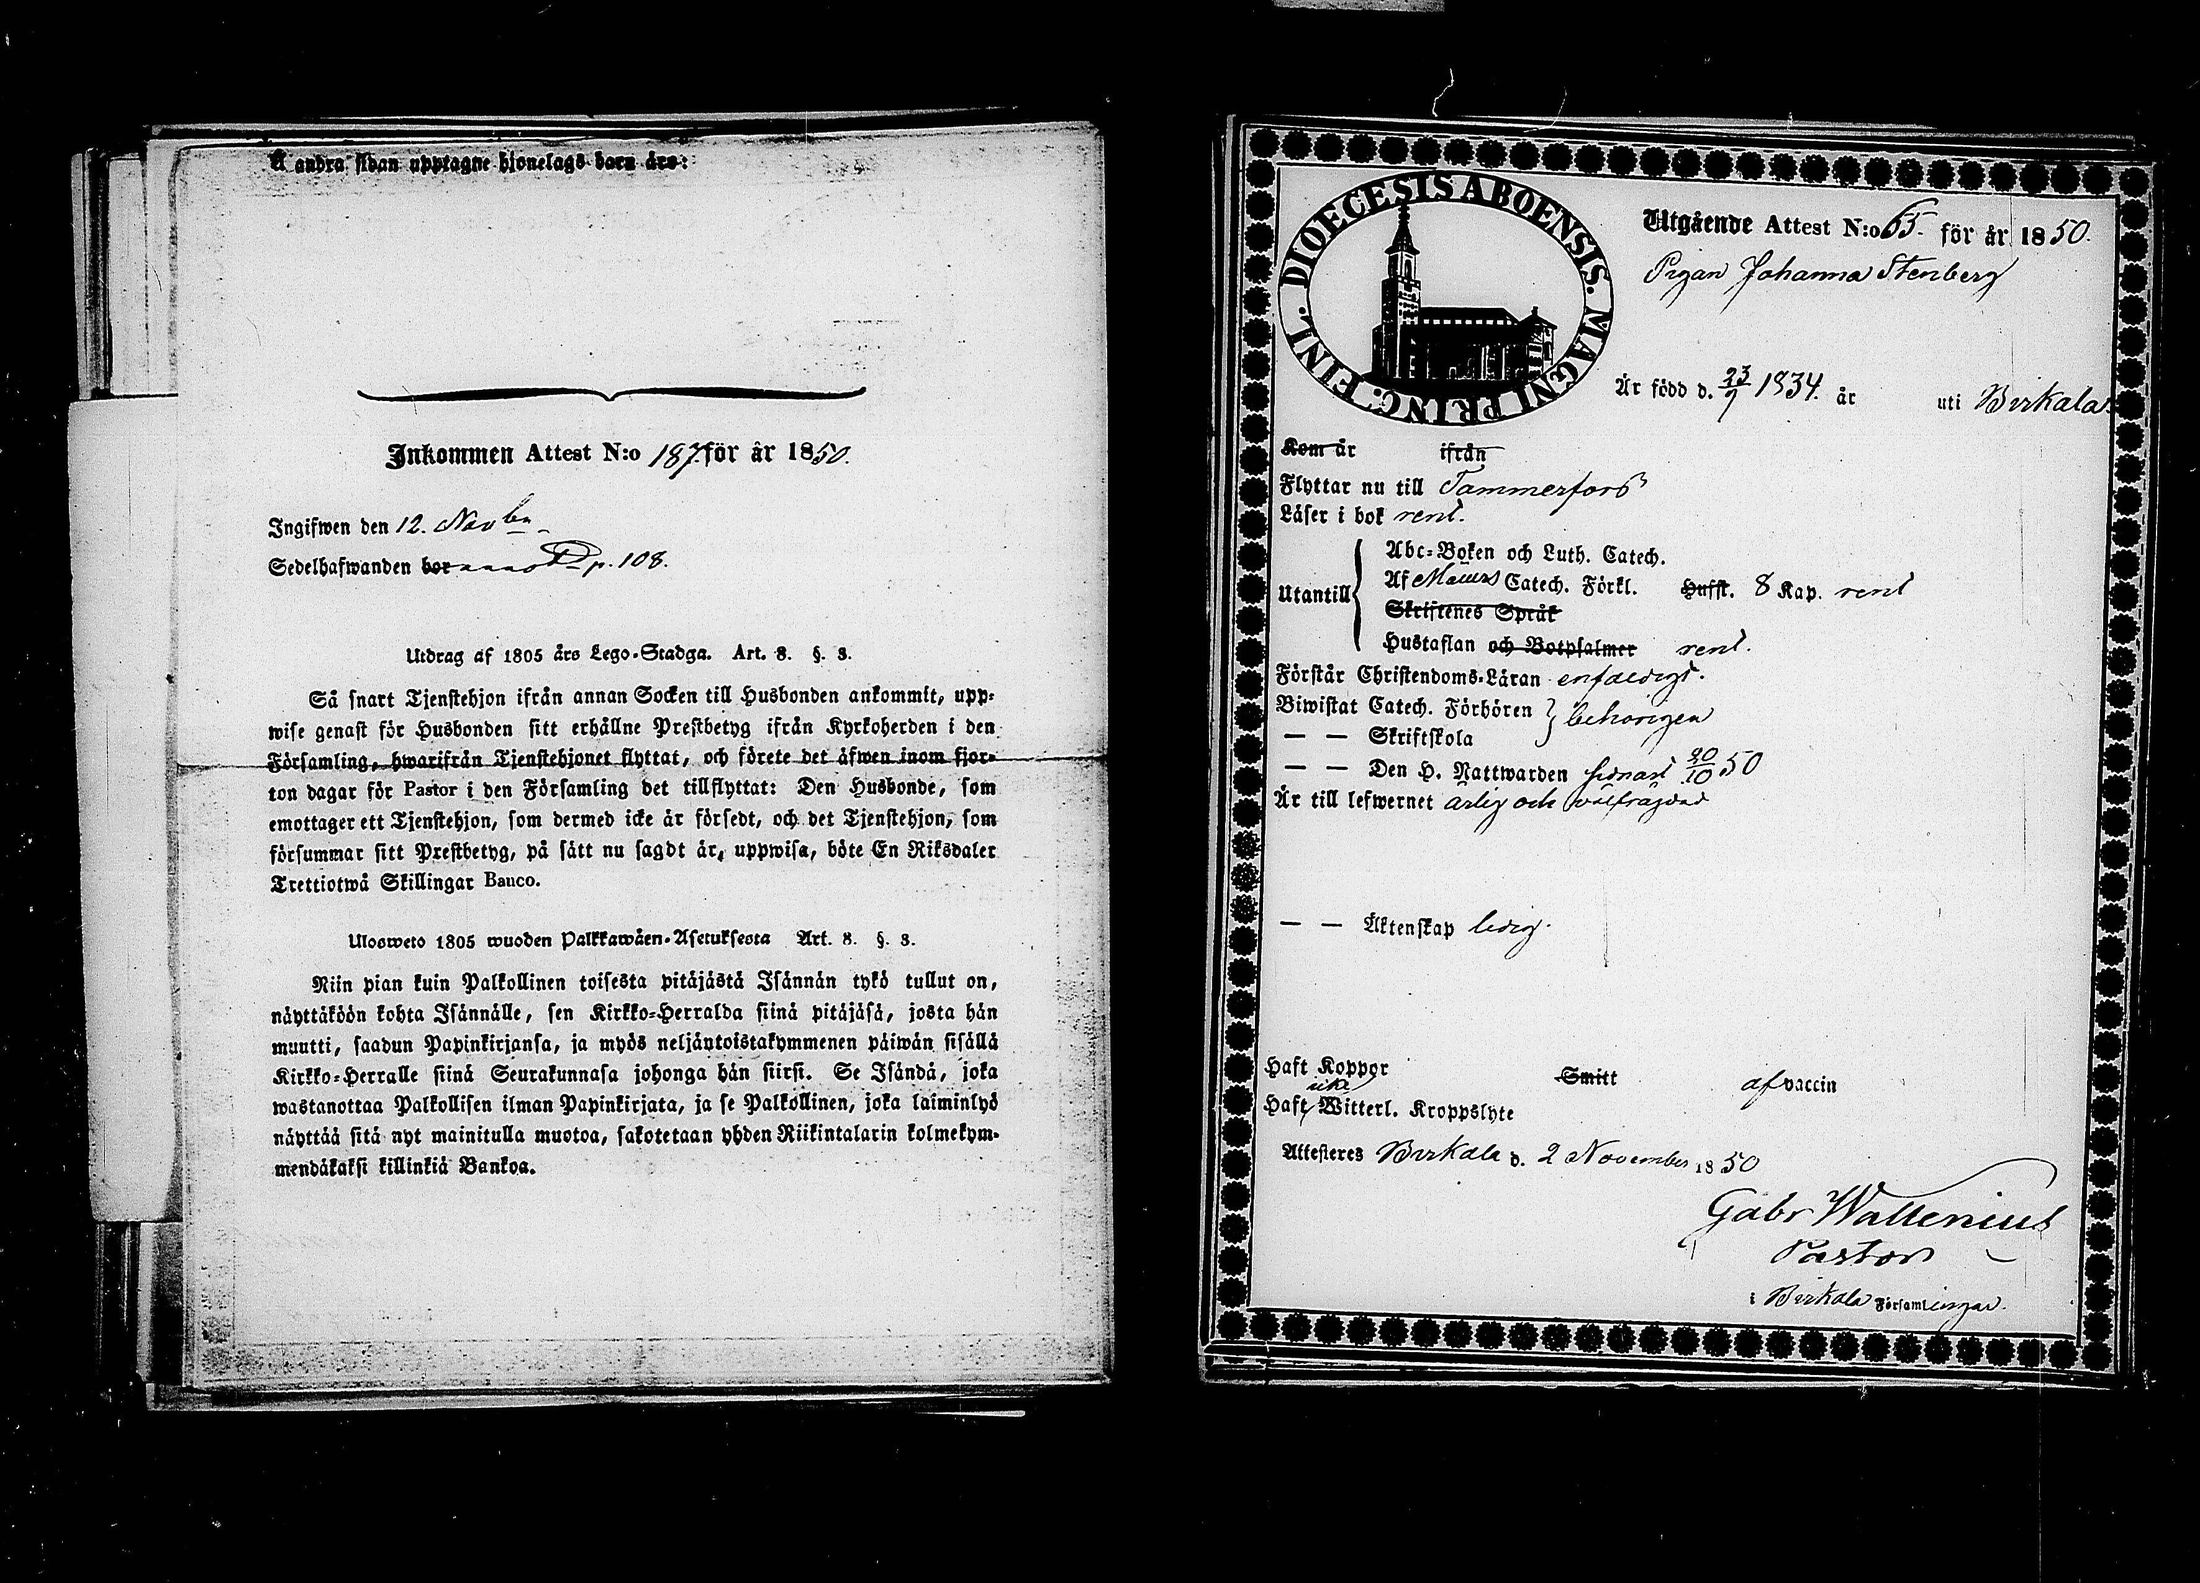 Å andra sidan upptagne hjonelags barn äro:
Inkommen Attest N:o 187. för år 1850.
Ingifwen den 12. Novbr
Sedelhafwanden bor p. 108.
Utdrag af 1805 års Lego-Stadga. Art. 8. §. 3.
Så snart Tjenstehjon ifrån annan Socken till Husbonden ankommit, upp-
wise genast för Husbonden sitt erhållne Prestbetyg ifrån Kyrkoherden i den
Församling, hwarifrån Tjenstehjonet flyttat, och förete det äfwen inom fjor-
ton dagar för Pastor i den Församling det tillflyttat: Den Husbonde, som
emottager ett Tjenstehjon, som dermed icke är försedt, och det Tjenstehjon, som
försummar sitt Prestbetyg, på sätt nu sagdt är, uppwisa, böte En Riksdaler
Trettiotwå Skillingar Banco.
Ulosweto 1805 wuoden Palkkawäen-Asetuksesta Art. 8. §. 3.
Niin pian kuin Palkollinen toisesta pitäjästä Isännän tykö tullut on,
näyttäköön kohta Isännälle, sen Kirkko-Herralda siinä pitäjäsä, josta hän
muutti, saadun Papinkirjansa, ja myös neljäntoistakymmenen päiwän sisällä
Kirkko-Herralle siinä Seurakunnasa johonga hän siirsi. Se Isändä, joka
wastanottaa Palkollisen ilman Papinkirjata, ja se Palkollinen, joka laiminlyö
näyttää sitä nyt mainitulla muotoa, sakotetaan yhden Riikintalarin kolmekym-
mendäkaksi killinkiä Bankoa.
DIOECESIS ABOENSIS. MAGNI PRINC. FINL.
Utgående Attest N:o 65 för år 1850.
Pigan Johanna Stenberg
Är född d. 23/9 1834. år uti Birkala
Kom år ifrån
Flyttar nu till Tammerfors
Läser i bok rent.
Utantill
Abc-Boken och Luth. Catech.
Af Catech. Förkl. Husst. 8 Kap. rent
Skriftenes Språk
Hustaflan och Botpsalmer rent.
Förstår Christendoms-Läran enfaldigt.
Biwistat Catech. Förhören behörigen
— — Skriftskola
— — Den H. Nattwarden sednast 20/10 50
Är till lefwernet ärlig och välfrägdad
— — Äktenskap ledig.
Haft Koppor Smitt af vaccin
Haft icke Witterl. Kroppslyte
Attesteres Birkala d. 2 November 1850
Gabr Wallenius
Pastor
i Birkala Församlingar.